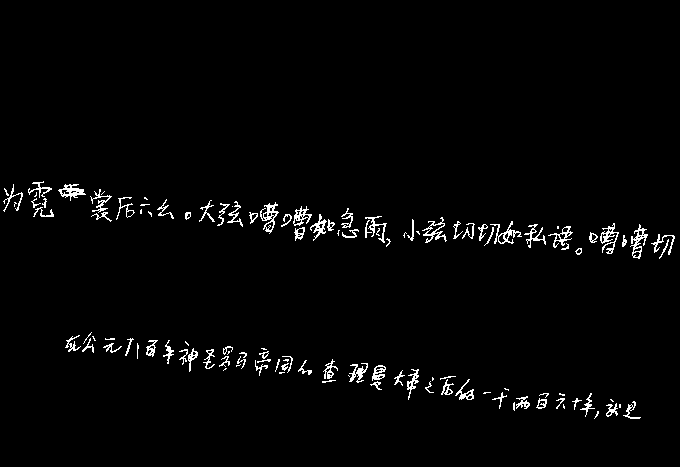 为霓裳后六幺。大弦嘈嘈如急雨,小弦切切如私语。嘈嘈切
在公元八百年神圣罗马帝国的查理曼大帝之后的一千两百六十年,就是